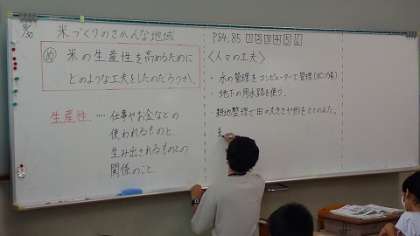 米づくりのさかんな地域
米の生産性を高めるために
どのような工夫をしたのだろうか。
生産性 …… 仕事やお金などの
使われるものと
生み出されるものとの
関係のこと
P84.85
〈人々の工夫〉
・水の管理をコンピューターで管理
・地下の用水路を使う。
・耕地整理で田の大きさや形をととのえた。